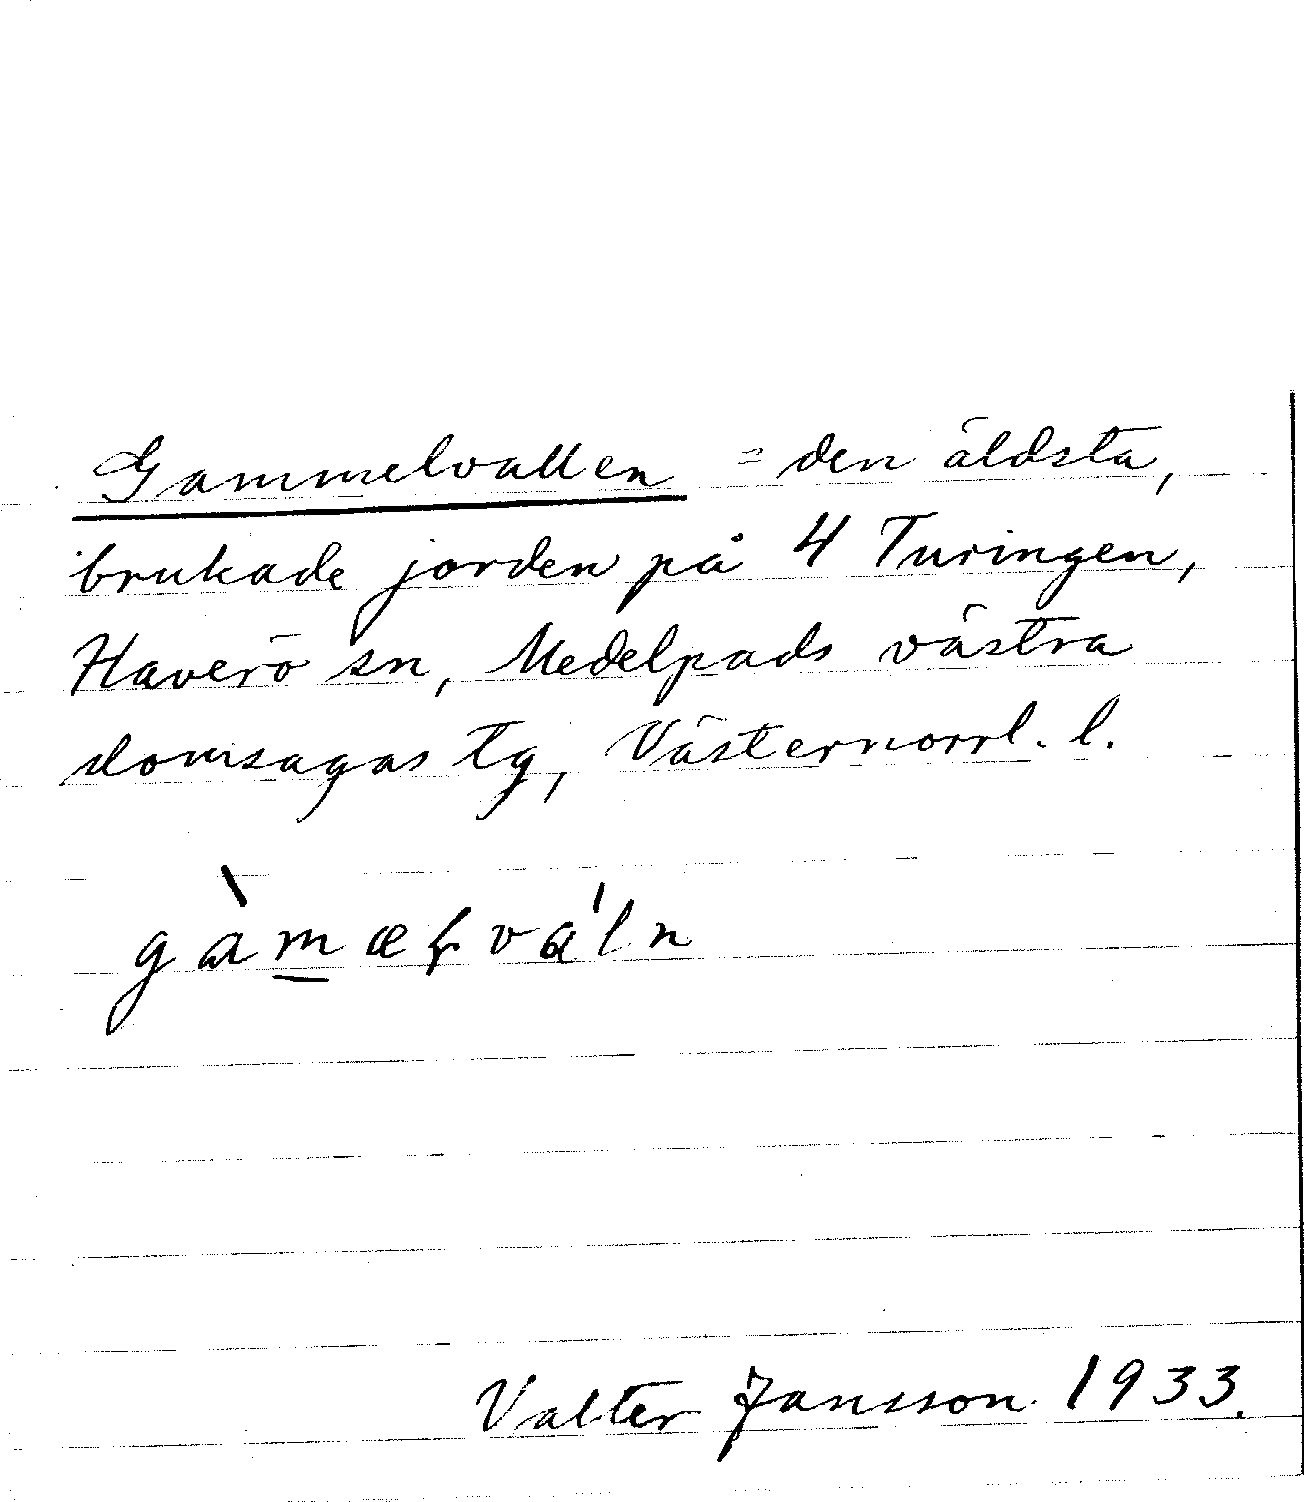 Gammelvallen = den äldsta,
brukade jorden på 4 Turingen,
Haverö sn, Medelpads västra
domsagas tg, Västernorrl. l.
gàmæɽvál̥n
Valter Jansson 1933.